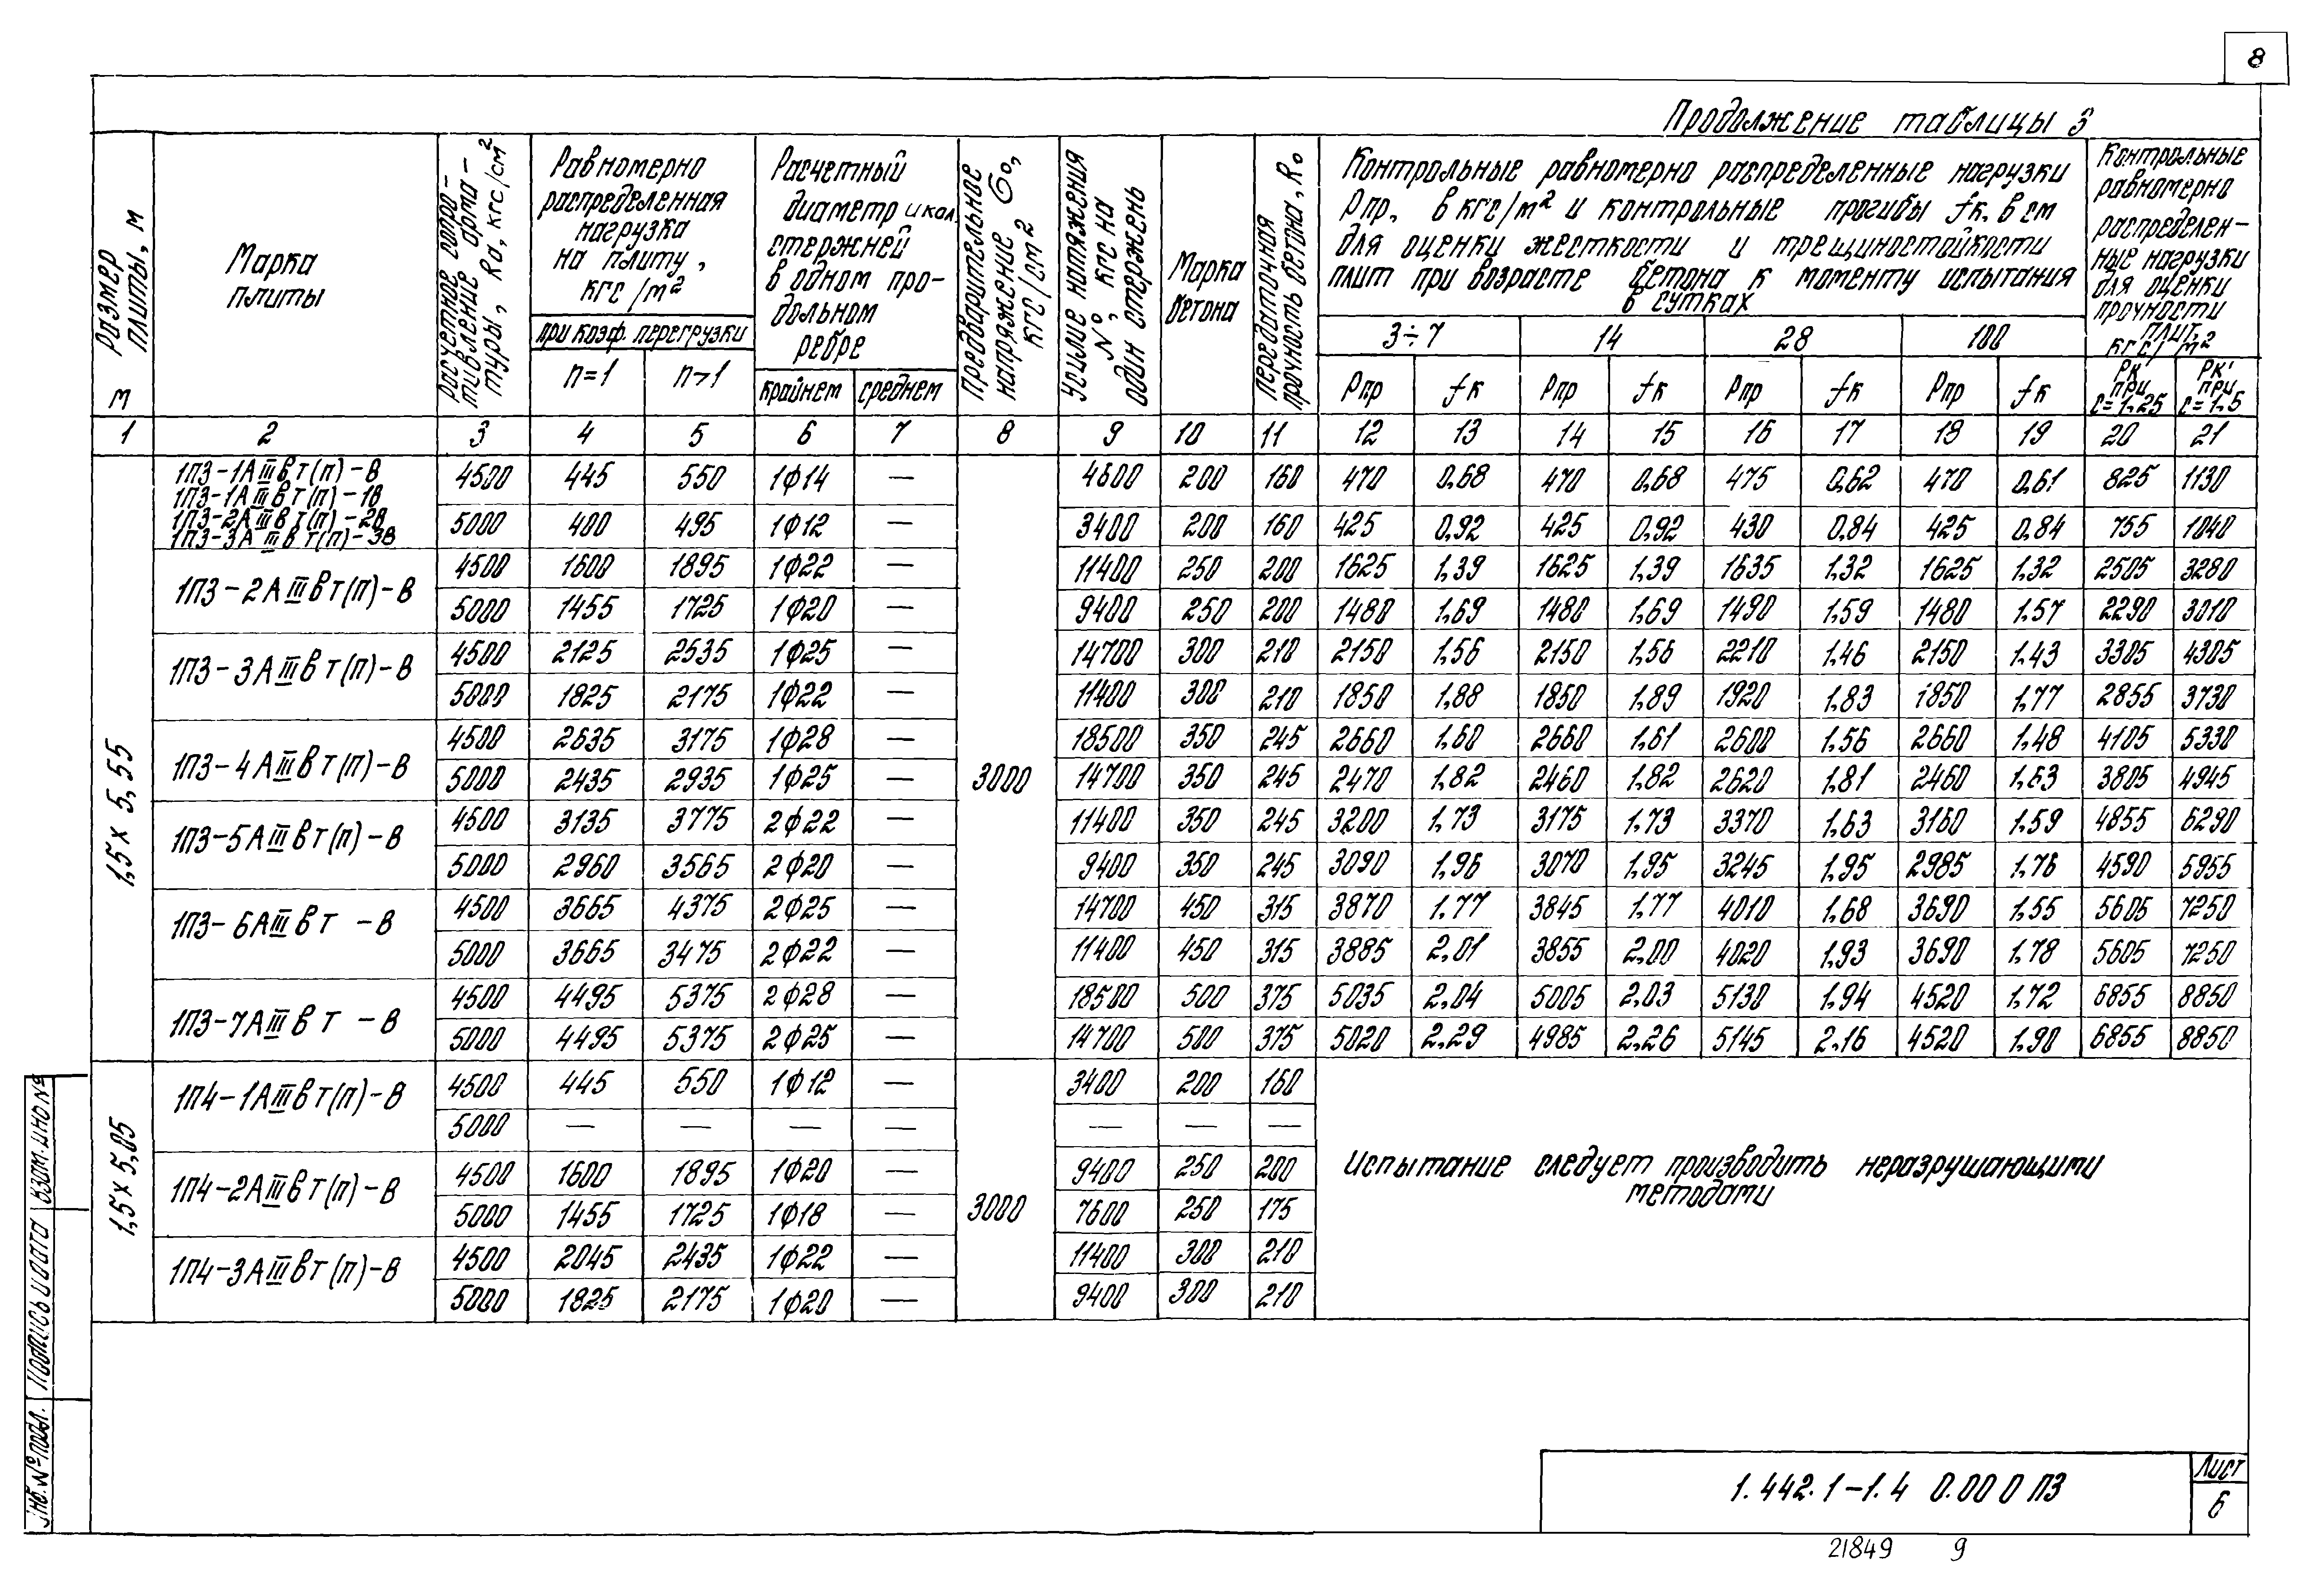 8
Продолжение таблицы 3
Размер плиты, м
м
Марка плиты
Расчетное сопротивление арматуры, Rа, кгс/см²
Равномерно распределенная нагрузка на плиту, кгс/м²
при коэф. перегрузки
n=1 n>1
Расчетный диаметр и кол. стержней в одном продольном ребре
крайнем среднем
Предварительное напряжение σо, кгс/см²
Усилие натяжения N°, кгс на один стержень
Марка бетона
Передаточная прочность бетона, Rо
Контрольные равномерно распределенные нагрузки
Рпр, в кгс/м² и контрольные прогибы fк, в см
для оценки жесткости и трещиностойкости
плит при возрасте бетона к моменту испытания
в сутках
3÷7 14 28 100
Рпр fк Рпр fк Рпр fк Рпр fк
Контрольные равномерно распределенные нагрузки для оценки прочности плит, кгс/м²
Рк' при с=1,25 Рк' при с=1,5
1 2 3 4 5 6 7 8 9 10 11 12 13 14 15 16 17 18 19 20 21
1,5 х 5,55
3000
1П3-1АIIIвт(п)-В
1П3-1АIIIвт(п)-1В
1П3-2АIIIвт(п)-2В
1П3-3АIIIвт(п)-3В
4500 445 550 1ф14 — 4600 200 160 470 0,68 470 0,68 475 0,62 470 0,61 825 1130
5000 400 495 1ф12 — 3400 200 160 425 0,92 425 0,92 430 0,84 425 0,84 755 1040
1П3-2АIIIвт(п)-В
4500 1600 1895 1ф22 — 11400 250 200 1625 1,39 1625 1,39 1635 1,32 1625 1,32 2505 3280
5000 1455 1725 1ф20 — 9400 250 200 1480 1,69 1480 1,69 1490 1,59 1480 1,57 2290 3010
1П3-3АIIIвт(п)-В
4500 2125 2535 1ф25 — 14700 300 210 2150 1,56 2150 1,56 2210 1,46 2150 1,43 3305 4305
5000 1825 2175 1ф22 — 11400 300 210 1850 1,88 1850 1,89 1920 1,83 1850 1,77 2855 3730
1П3-4АIIIвт(п)-В
4500 2635 3175 1ф28 — 18500 350 245 2660 1,60 2660 1,61 2600 1,56 2660 1,48 4105 5330
5000 2435 2935 1ф25 — 14700 350 245 2470 1,82 2460 1,82 2620 1,81 2460 1,63 3805 4945
1П3-5АIIIвт(п)-В
4500 3135 3775 2ф22 — 11400 350 245 3200 1,73 3175 1,73 3370 1,63 3160 1,59 4855 6290
5000 2960 3565 2ф20 — 9400 350 245 3090 1,96 3070 1,95 3245 1,95 2985 1,76 4590 5955
1П3-6АIIIвт -В
4500 3665 4375 2ф25 — 14700 450 315 3870 1,77 3845 1,77 4010 1,68 3690 1,55 5605 7250
5000 3665 3475 2ф22 — 11400 450 315 3885 2,01 3855 2,00 4020 1,93 3690 1,78 5605 7250
1П3-7АIIIвт -В
4500 4495 5375 2ф28 — 18500 500 375 5035 2,04 5005 2,03 5130 1,94 4520 1,72 6855 8850
5000 4495 5375 2ф25 — 14700 500 375 5020 2,29 4985 2,26 5145 2,16 4520 1,90 6855 8850
1,5 х 5,05
3000
1П4-1АIIIвт(п)-В
4500 445 550 1ф12 — 3400 200 160
5000 — — — — — — —
1П4-2АIIIвт(п)-В
4500 1600 1895 1ф20 — 9400 250 200
5000 1455 1725 1ф18 — 7600 250 175
1П4-3АIIIвт(п)-В
4500 2045 2435 1ф22 — 11400 300 210
5000 1825 2175 1ф20 — 9400 300 210
Испытание следует производить неразрушающими
методами
Взам. инв №
Подпись и дата
Инв. № подл.
1.442.1-1.4 0.000 ПЗ
Лист
6
21849 9